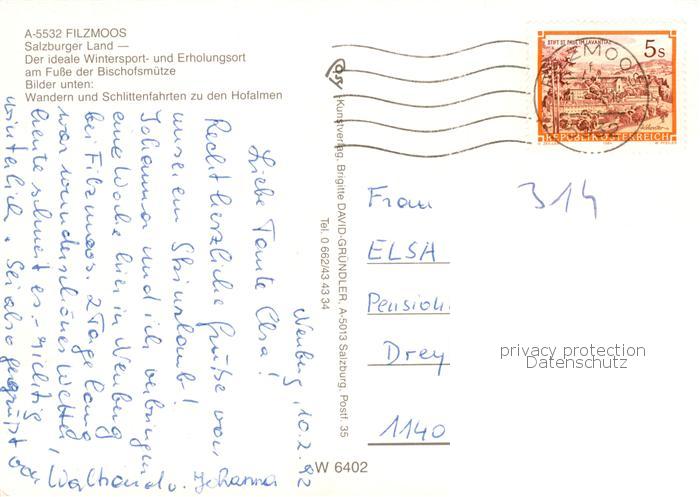 A-5532 FILZMOOS
Salzburger Land —
Der ideale Wintersport- und Erholungsort
am Fuße der Bischofsmütze
Bilder unten:
Wandern und Schlittenfahrten zu den Hofalmen
Neuberg, 10.2.92
Liebe Tante Elsa!
Recht herzliche Grüße von
unserem Skiurlaub!
Johanna und ich verbringen
eine Woche hier in Neuberg
bei Filzmoos. 2 Tage lang
war wunderschönes Wetter,
heute schneit es – richtig
winterlich. Sei also gegrüßt
von Waltraud u. Johanna
Kunstverlag, Brigitte DAVID-GRÜNDLER, A-5013 Salzburg, Postf. 35
Tel. 0 662/43 43 34
W 6402
STIFT ST. PAUL IM LAVANTTAL
5 S
REPUBLIK ÖSTERREICH
314
Frau
ELSA
Pension
Drey
1140
privacy protection
Datenschutz